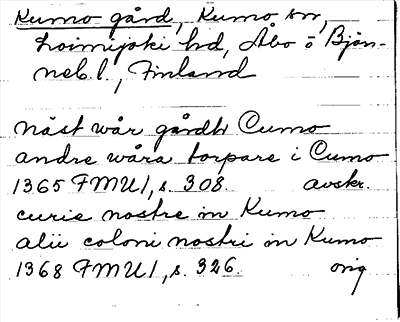 Kumo gård, Kumo sn,
Loimijoki hd, Åbo o Björ-
neb. l., Finland
näst wår gårdh Cumo
andre wåra torpare i Cumo
1365 FMU I, s. 308. avskr.
curie nostre in Kumo
alii coloni nostri in Kumo
1368 FMU I, s. 326. orig